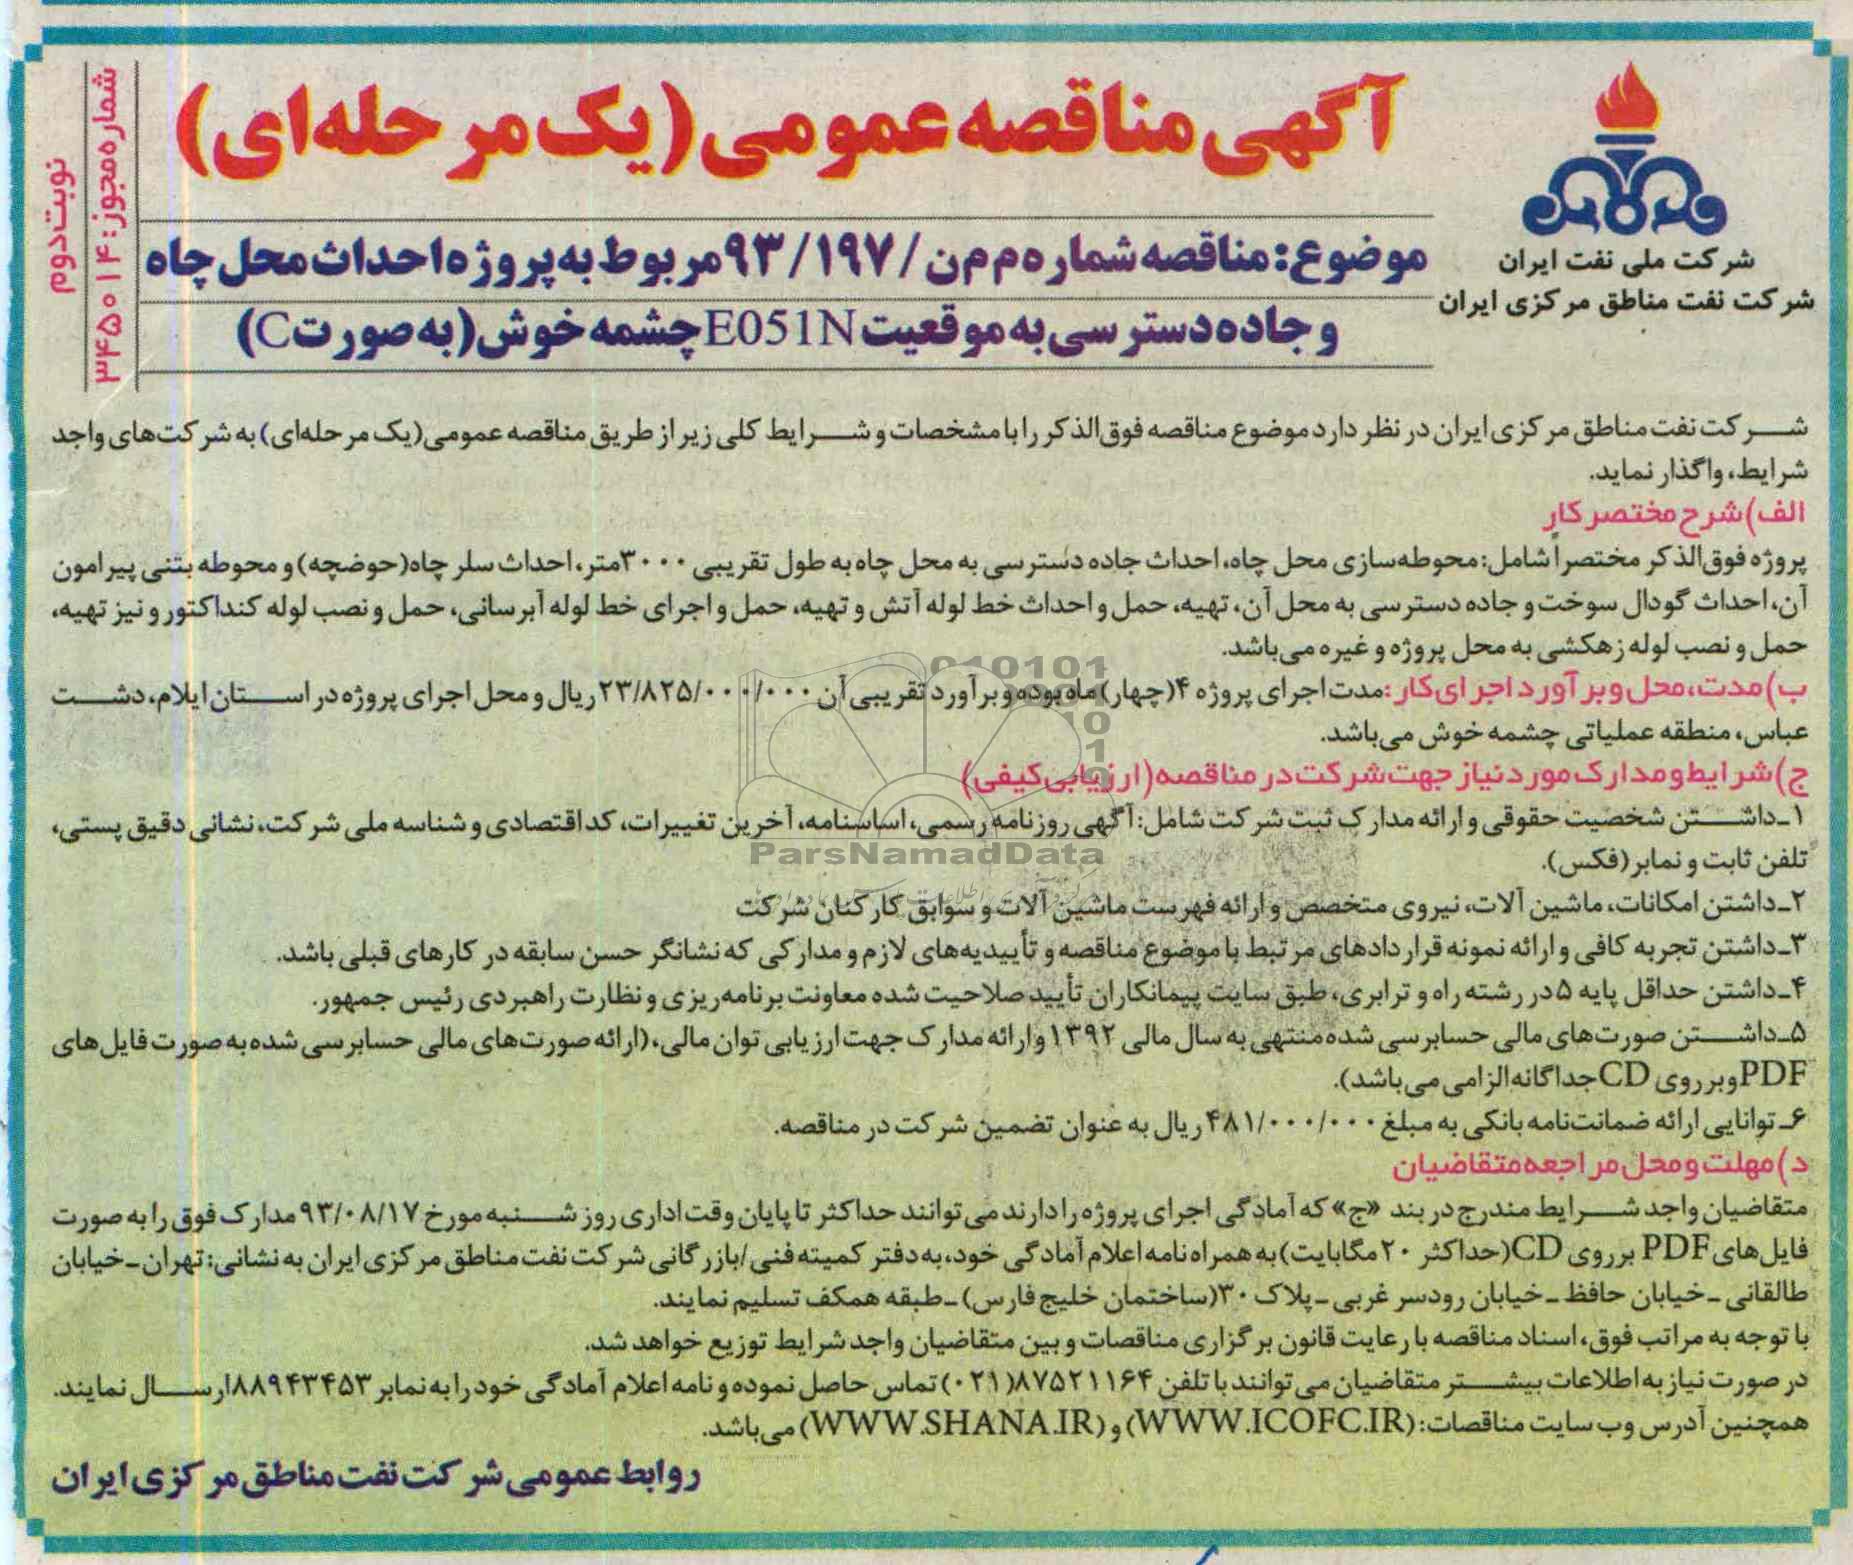 آگهی مناقصه عمومی (یک مرحله‌ای)
شرکت ملی نفت ایران
شرکت نفت مناطق مرکزی ایران
شماره مجوز: ۳۴۵۰۱۴
نوبت دوم
موضوع: مناقصه شماره م م ن / ۹۳/۱۹۷ مربوط به پروژه احداث محل چاه
و جاده دسترسی به موقعیت E051N چشمه خوش (به صورت C)
شرکت نفت مناطق مرکزی ایران در نظر دارد موضوع مناقصه فوق‌الذکر را با مشخصات و شرایط کلی زیر از طریق مناقصه عمومی (یک مرحله‌ای) به شرکت‌های واجد
شرایط، واگذار نماید.
الف) شرح مختصر کار
پروژه فوق‌الذکر مختصراً شامل: محوطه‌سازی محل چاه، احداث جاده دسترسی به محل چاه به طول تقریبی ۳۰۰۰ متر، احداث سلر چاه (حوضچه) و محوطه بتنی پیرامون
آن، احداث گودال سوخت و جاده دسترسی به محل آن، تهیه، حمل و احداث خط لوله آتش و تهیه، حمل و اجرای خط لوله آبرسانی، حمل و نصب لوله کنداکتور و نیز تهیه،
حمل و نصب لوله زهکشی به محل پروژه و غیره می‌باشد.
ب) مدت، محل و برآورد اجرای کار: مدت اجرای پروژه ۴ (چهار) ماه بوده و برآورد تقریبی آن ۲۳/۸۲۵/۰۰۰/۰۰۰ ریال و محل اجرای پروژه در استان ایلام، دشت
عباس، منطقه عملیاتی چشمه خوش می‌باشد.
ج) شرایط و مدارک مورد نیاز جهت شرکت در مناقصه (ارزیابی کیفی)
۱ـ داشتن شخصیت حقوقی و ارائه مدارک ثبت شرکت شامل: آگهی روزنامه رسمی، اساسنامه، آخرین تغییرات، کد اقتصادی و شناسه ملی شرکت، نشانی دقیق پستی،
تلفن ثابت و نمابر (فکس).
ParsNamadData
۲ـ داشتن امکانات، ماشین آلات، نیروی متخصص و ارائه فهرست ماشین آلات و سوابق کارکنان شرکت
۳ـ داشتن تجربه کافی و ارائه نمونه قراردادهای مرتبط با موضوع مناقصه و تأییدیه‌های لازم و مدارکی که نشانگر حسن سابقه در کارهای قبلی باشد.
۴ـ داشتن حداقل پایه ۵ در رشته راه و ترابری، طبق سایت پیمانکاران تأیید صلاحیت شده معاونت برنامه‌ریزی و نظارت راهبردی رئیس جمهور.
۵ـ داشتن صورت‌های مالی حسابرسی شده منتهی به سال مالی ۱۳۹۲ و ارائه مدارک جهت ارزیابی توان مالی، (ارائه صورت‌های مالی حسابرسی شده به صورت فایل‌های
PDF و بر روی CD جداگانه الزامی می‌باشد).
۶ـ توانایی ارائه ضمانت‌نامه بانکی به مبلغ ۴۸۱/۰۰۰/۰۰۰ ریال به عنوان تضمین شرکت در مناقصه.
د) مهلت و محل مراجعه متقاضیان
متقاضیان واجد شرایط مندرج در بند «ج» که آمادگی اجرای پروژه را دارند می‌توانند حداکثر تا پایان وقت اداری روز شنبه مورخ ۹۳/۰۸/۱۷ مدارک فوق را به صورت
فایل‌های PDF بر روی CD (حداکثر ۲۰ مگابایت) به همراه نامه اعلام آمادگی خود، به دفتر کمیته فنی/بازرگانی شرکت نفت مناطق مرکزی ایران به نشانی: تهران ـ خیابان
طالقانی ـ خیابان حافظ ـ خیابان رودسر غربی ـ پلاک ۳۰ (ساختمان خلیج فارس) ـ طبقه همکف تسلیم نمایند.
با توجه به مراتب فوق، اسناد مناقصه با رعایت قانون برگزاری مناقصات و بین متقاضیان واجد شرایط توزیع خواهد شد.
در صورت نیاز به اطلاعات بیشتر متقاضیان می‌توانند با تلفن ۸۷۵۲۱۱۶۴ (۰۲۱) تماس حاصل نموده و نامه اعلام آمادگی خود را به نمابر ۸۸۹۴۳۴۵۳ ارسال نمایند.
همچنین آدرس وب سایت مناقصات: (WWW.ICOFC.IR) و (WWW.SHANA.IR) می‌باشد.
روابط عمومی شرکت نفت مناطق مرکزی ایران